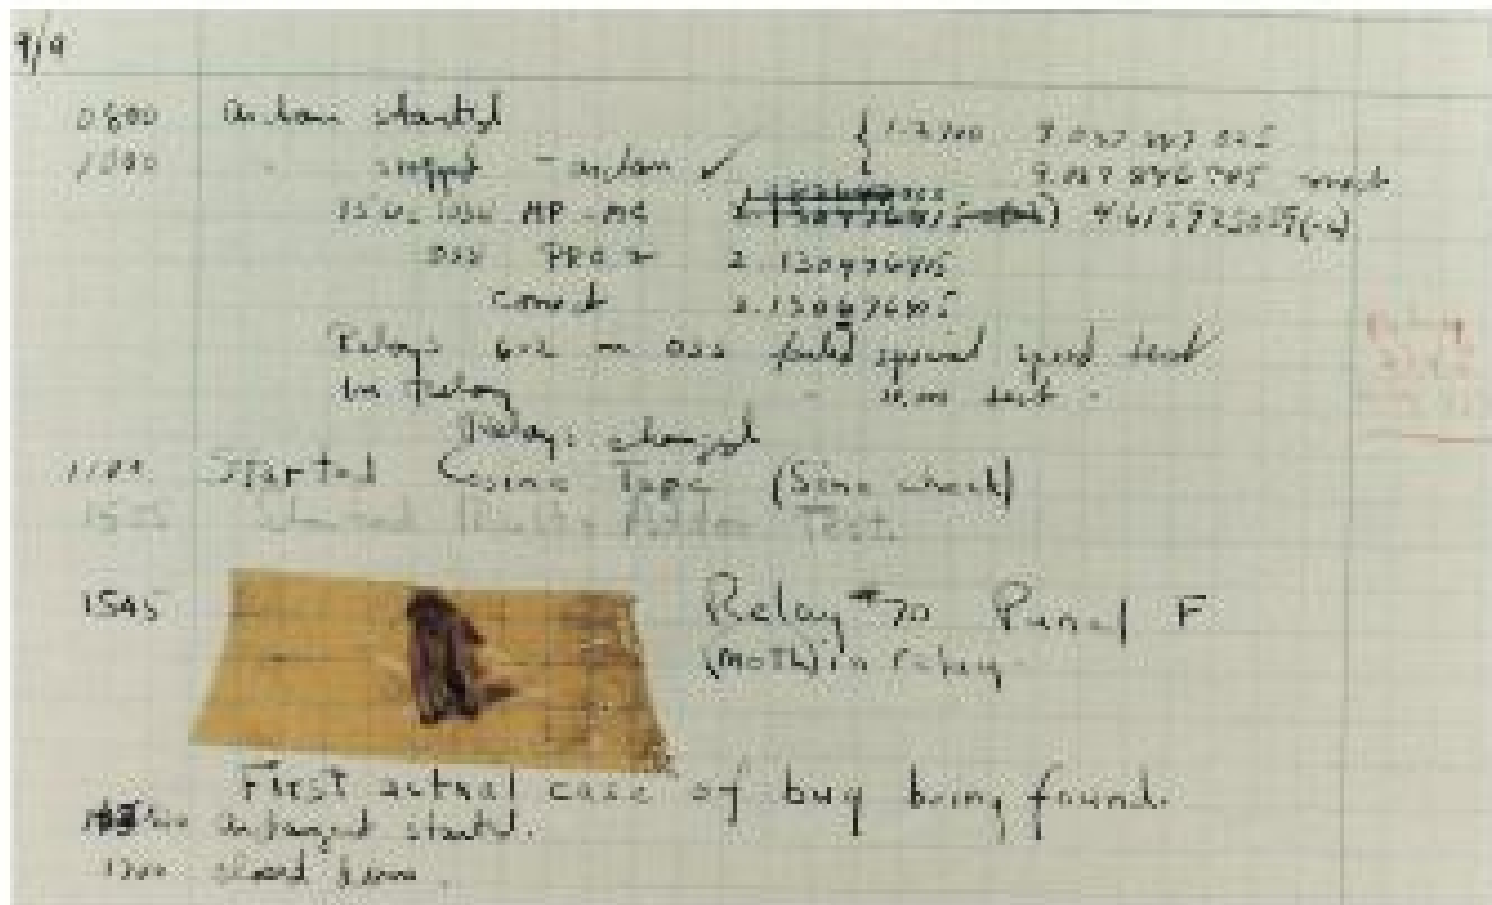 9/9
0800 antan started
1000 " stopped - antan ✓ { 1.2700 9.037 847 025
9.037 846 795 correct
13" MP - MC
033 PRO 2 2.130476415
correct 2.130676415
Relays 6-2 in 033 failed special speed test
in relay " test "
Relays changed
1100 Started Cosine Tape (Sine check)
1525 Started Multi Adder Test.
1545 Relay #70 Panel F
(moth) in relay.
First actual case of bug being found.
antangent started.
1700 closed down.